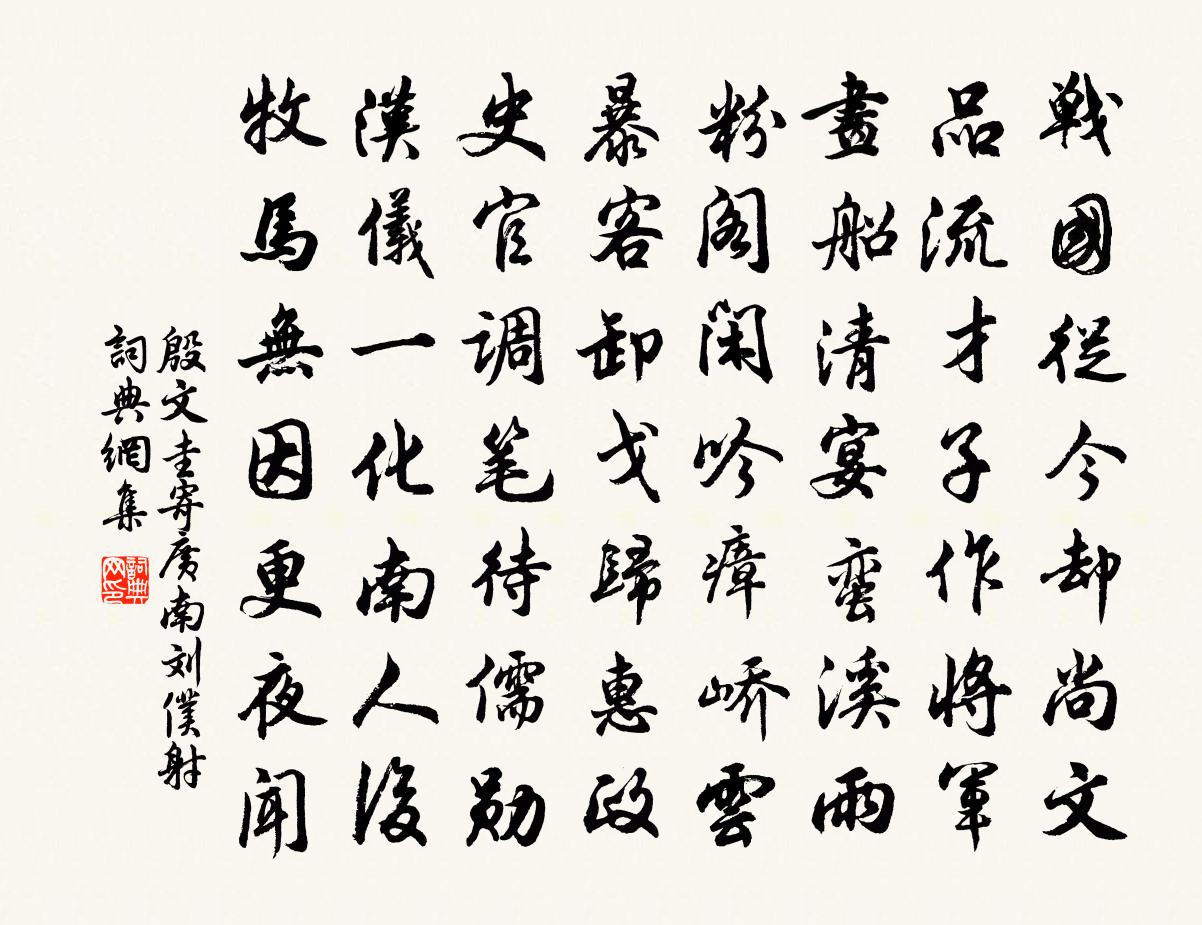 戰國從今却尚文
品流才子作將軍
畫船清宴蛮溪雨
粉阁闲吟瘴峤雲
暴客卸戈歸惠政
史官调笔待儒勋
漢儀一化南人後
牧馬無因更夜闻
殷文圭寄廣南刘僕射
詞典網集
詞典网印